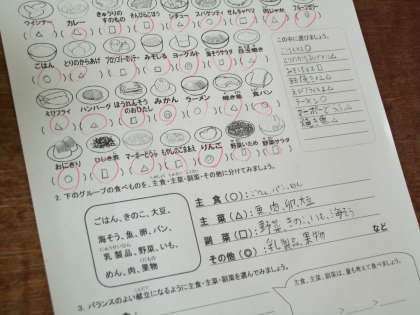 ウインナー カレー きゅうりのすのもの さんぴんごはん シチュー スパゲッティ せんキャベツ 肉じゃが フルーツゼリー
(△) (○) (□) (○)
ごはん とりのからあげ ブロッコリー みそしる ヨーグルト 海そうサラダ 目玉焼き
(○) (△) (□) (□) (◎) (□) (△)
エビフライ ハンバーグ ほうれんそうのおひたし みかん ラーメン 焼き魚 食パン
(△) (△) (□) (◎) (○) (△) (○)
おにぎり ひじき煮 マーボーどうふ もやしのごまあえ りんご 野菜いため 野菜サラダ
(○) (□) (△) (□) (◎) (□) (□)
この中に選びましょう。
ごはん○
とりのからあげ△
みそしる□
エビフライ△
ラーメン○
2. 下のグループの食べものを、主食・主菜・副菜・その他に分けてみましょう。
ごはん、きのこ、大豆、
海そう、魚、卵、パン、
乳製品、野菜、いも、
めん、肉、果物
主食(○):ごはん、パン、めん
主菜(△):魚、肉、卵、大豆
副菜(□):野菜、きのこ、いも、海そう
その他(◎):乳製品、果物 など
3. バランスのよい献立になるように主食・主菜・副菜を選んでみましょう。
主食、主菜、副菜は、量も考えて食べましょう。